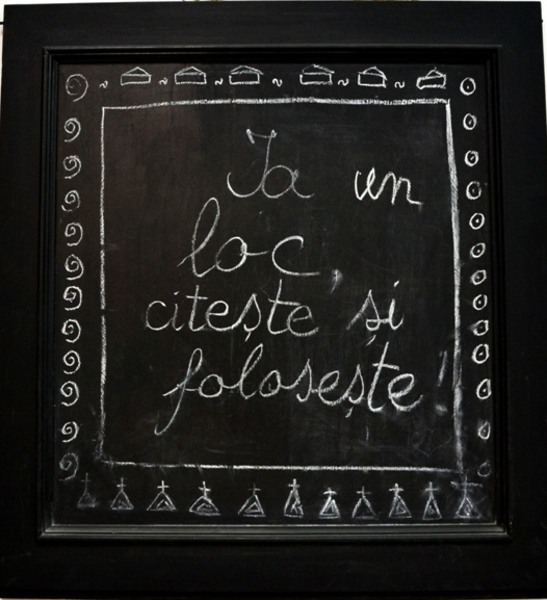 Ia un
loc,
citește și
folosește!